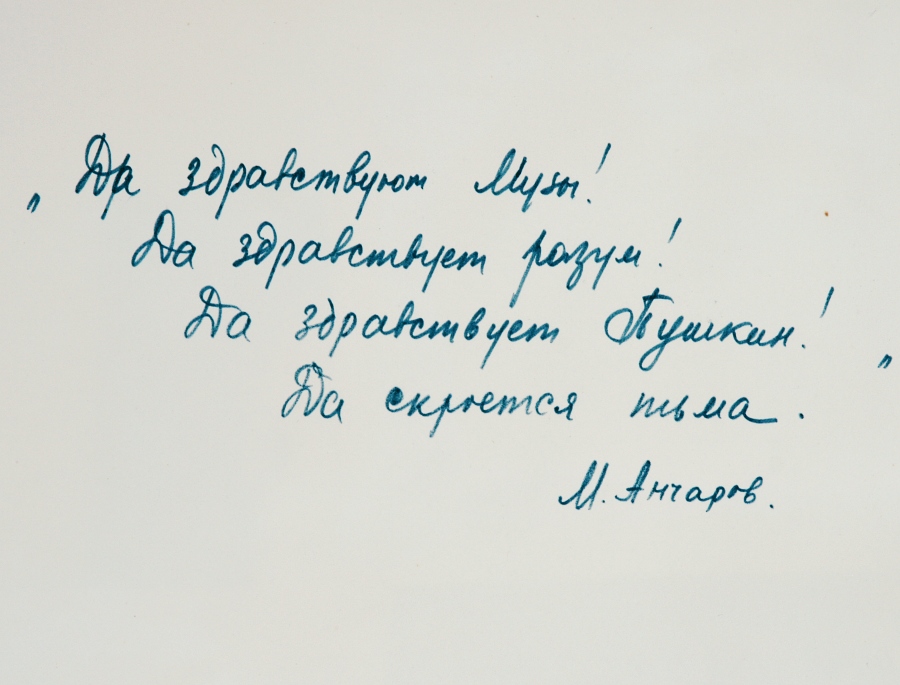 „Да здравствуют Музы!
Да здравствует разум!
Да здравствует Пушкин!
Да скроется тьма."
М. Анчаров.